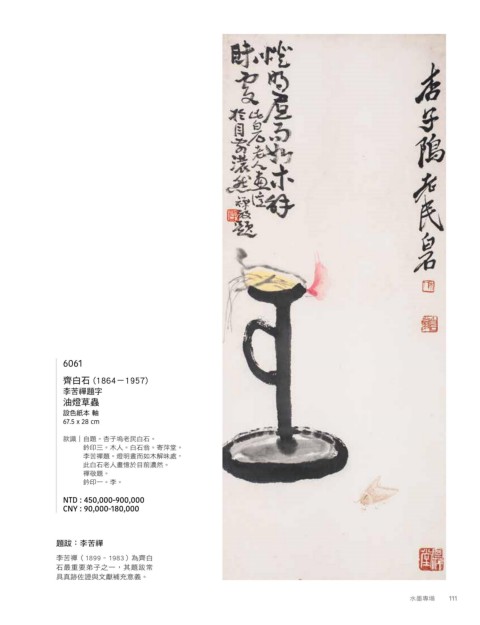 杏子隖老民白石
燈明晝而如木解
味處
此白石老人畫憶
於目前濃然
禪敬題
6061
齊白石（1864－1957）
李苦禪題字
油燈草蟲
設色紙本 軸
67.5 x 28 cm
款識｜自題。杏子塢老民白石。
鈐印三。木人。白石翁。寄萍堂。
李苦禪題。燈明晝而如木解味處。
此白石老人畫憶於目前濃然。
禪敬題。
鈐印一。李。
NTD : 450,000-900,000
CNY : 90,000-180,000
題跋：李苦禪
李苦禪（1899－1983）為齊白
石最重要弟子之一，其題跋常
具真跡佐證與文獻補充意義。
水墨專場 111